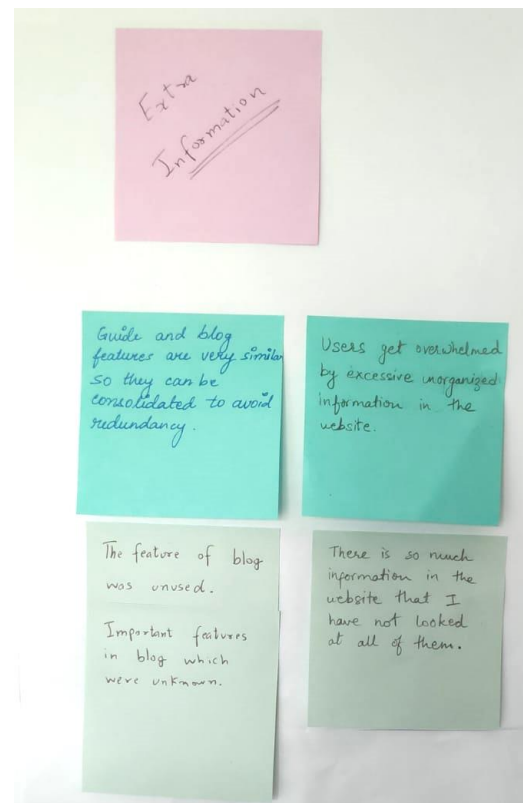 Extra
Information
Guide and blog
features are very similar
so they can be
consolidated to avoid
redundancy.
Users get overwhelmed
by excessive unorganized
information in the
website.
The feature of blog
was unused.
Important features
in blog which
were unknown.
There is so much
information in the
website that I
have not looked
at all of them.